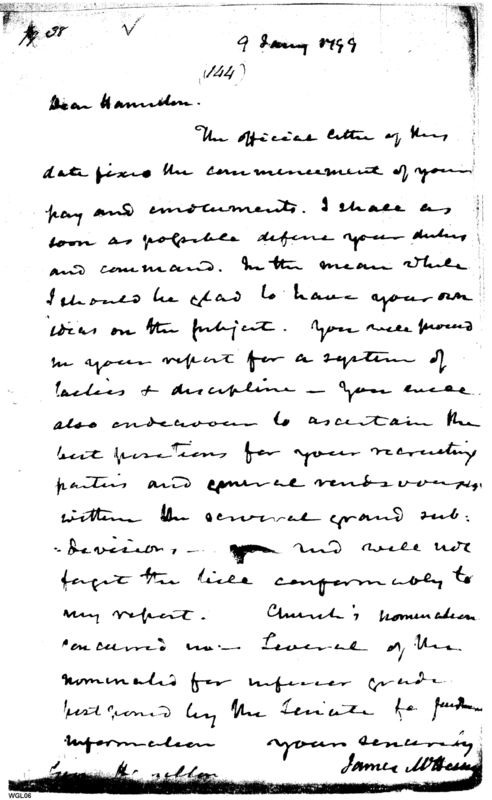 38 ✓
9 Jany 1799
(144)
Dear Hamilton.
The official letter of this
date fixes the commencement of your
pay and emoluments. I shall as
soon as possible define your duties
and command. In the mean while
I should be glad to have your own
ideas on the subject. You will proceed
in your report for a system of
tactics & discipline — You will
also endeavour to ascertain the
best positions for your recruiting
parties and general rendezvous
within the several grand sub=
=divisions — and will not
forget the bill conformably to
my report. Church's nomination
concurred in — Several of the
nominated for inferior grade
postponed by the Senate for further
information yours sincerely
James McHenry
Gen Hamilton
WGL06